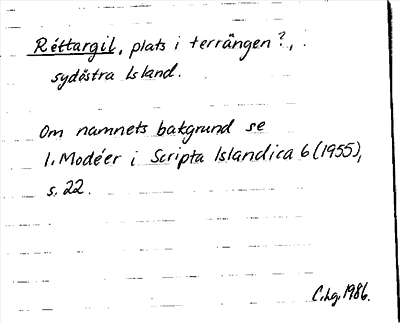 Réttargil, plats i terrängen?,
sydöstra Island.
Om namnets bakgrund se
I. Modéer i Scripta Islandica 6 (1955),
s. 22.
C.Lg. 1986.